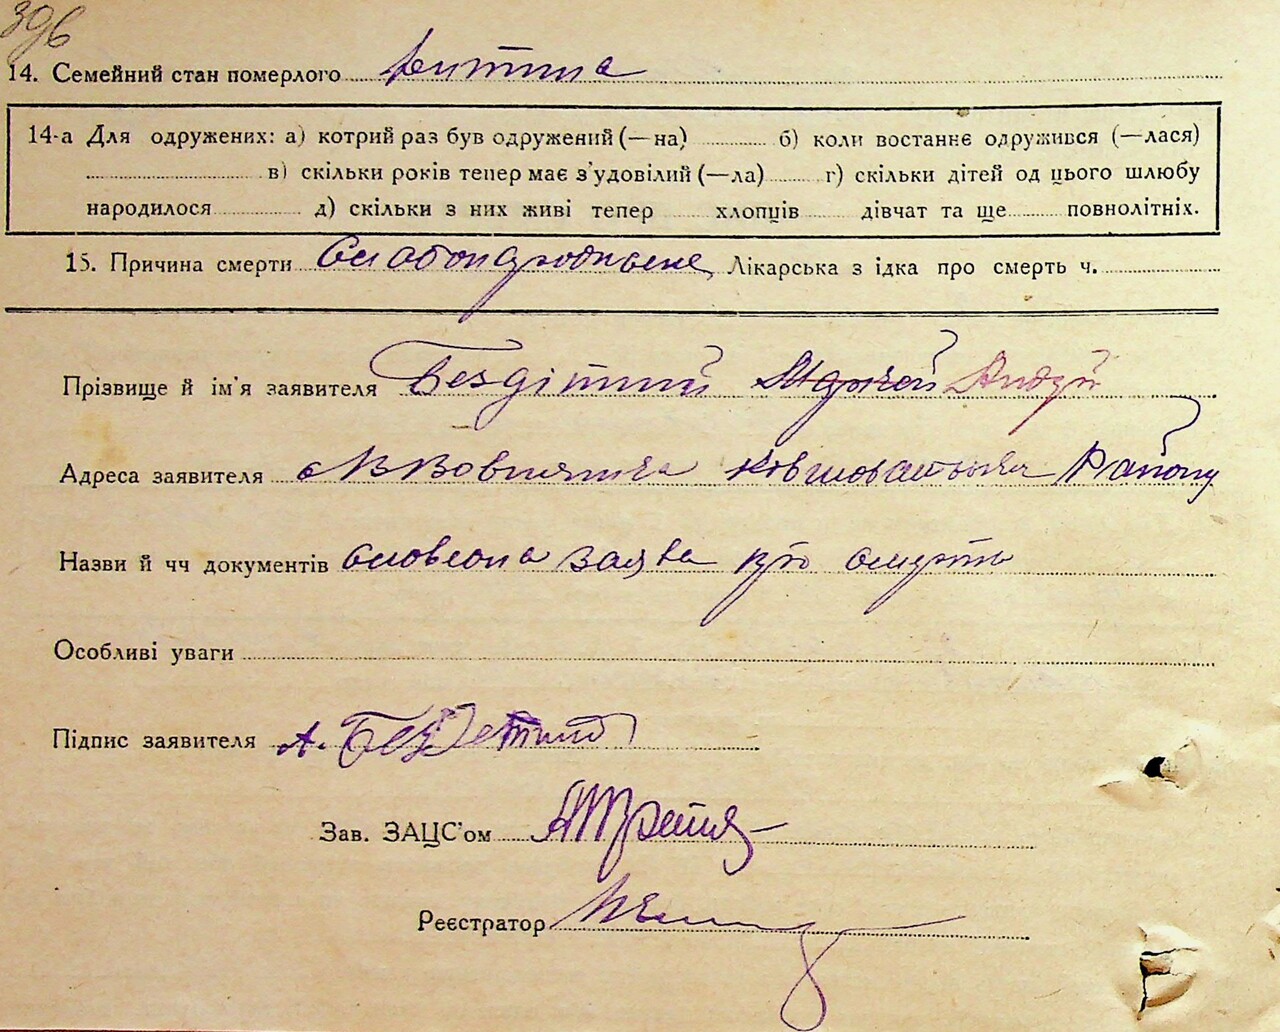 396
14. Семейний стан померлого дитина
14-а Для одружених: а) котрий раз був одружений (—на) б) коли востаннє одружився (—лася)
в) скільки років тепер має з'удовілий (—ла) г) скільки дітей од цього шлюбу
народилося д) скільки з них живі тепер хлопців дівчат та ще повнолітніх.
15. Причина смерти Лікарська з ідка про смерть ч.
Прізвище й ім'я заявителя Бездітний Андрій
Адреса заявителя с Району
Назви й чч документів словесна заява про смерть
Особливі уваги
Підпис заявителя А. Бездетний
Зав. ЗАЦС'ом
Реєстратор